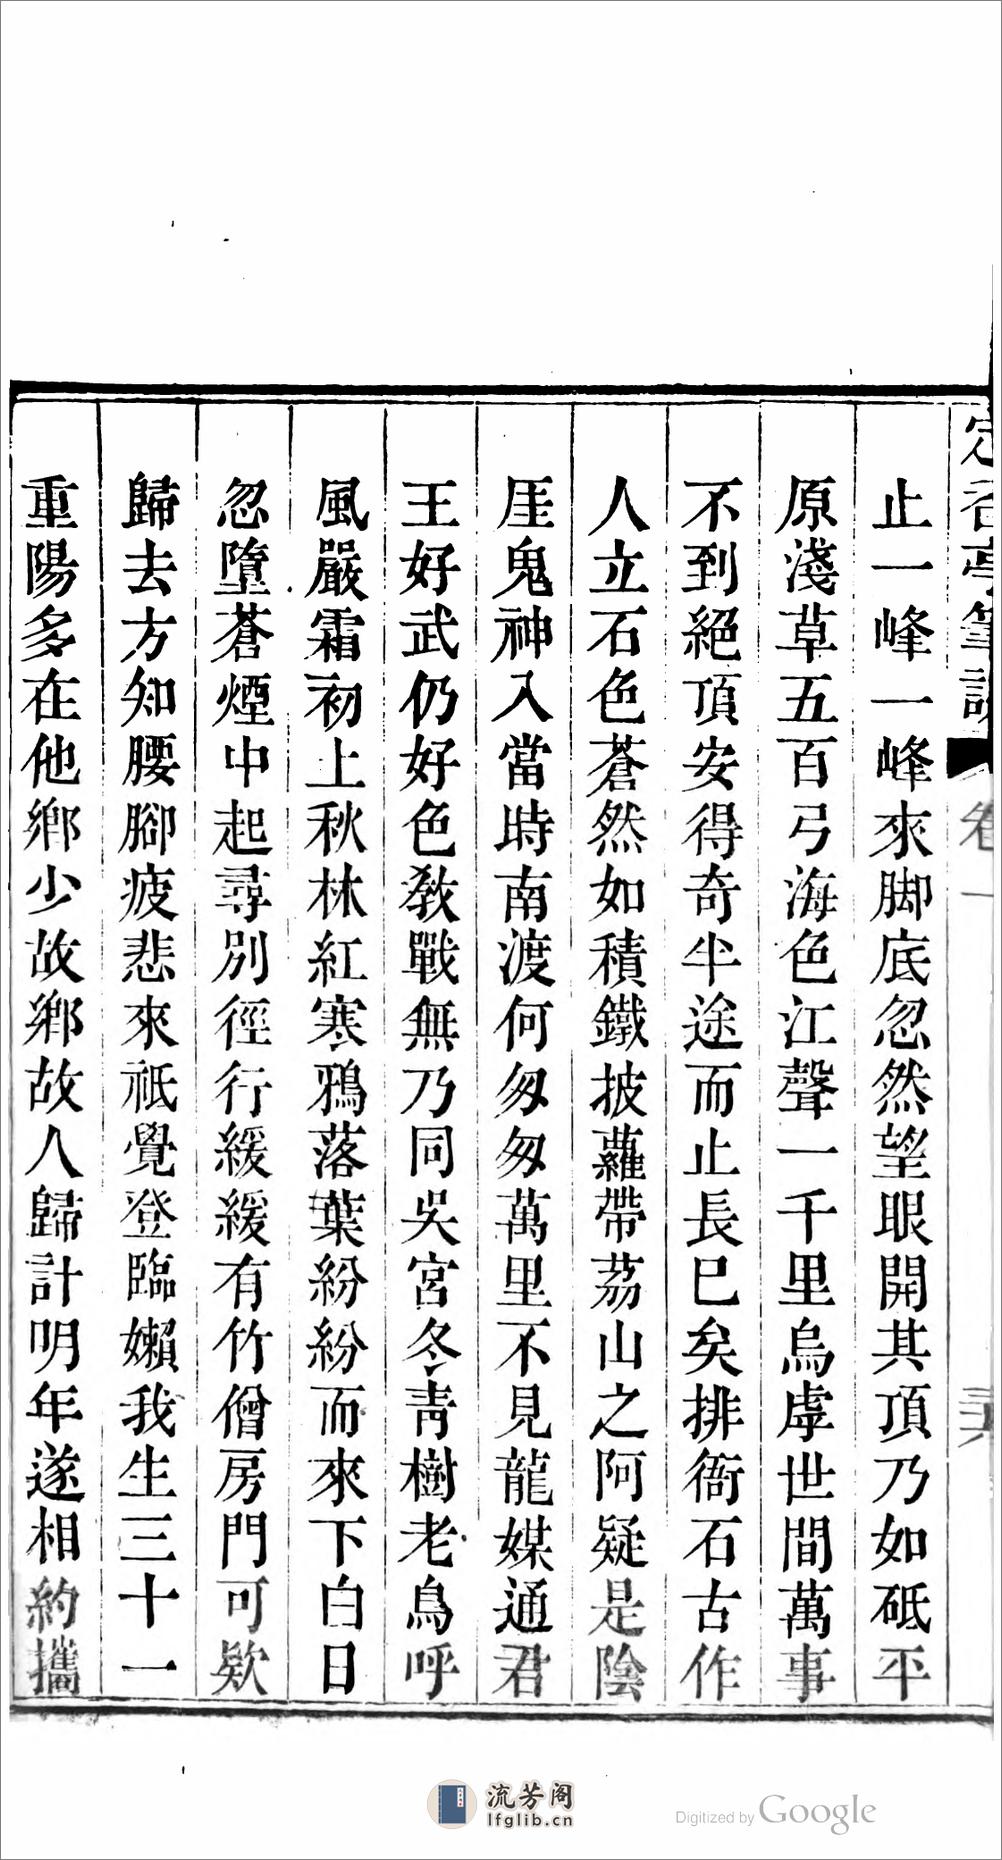 定香亭筆談
卷一
止一峰一峰來脚底忽然望眼開其頂乃如砥平
原淺草五百弓海色江聲一千里烏虖世間萬事
不到絕頂安得奇半途而止長已矣排衙石古作
人立石色蒼然如積鐵披蘿帶荔山之阿疑是陰
厓鬼神入當時南渡何匆匆萬里不見龍媒通君
王好武仍好色教戰無乃同吳宮冬青樹老鳥呼
風嚴霜初上秋林紅寒鴉落葉紛紛而來下白日
忽墮蒼煙中起尋別徑行緩緩有竹僧房門可欵
歸去方知腰腳疲悲來祗覺登臨嬾我生三十一
重陽多在他鄉少故鄉故人歸計明年遂相約攜
流芳阁
lfglib.cn
Digitized by Google